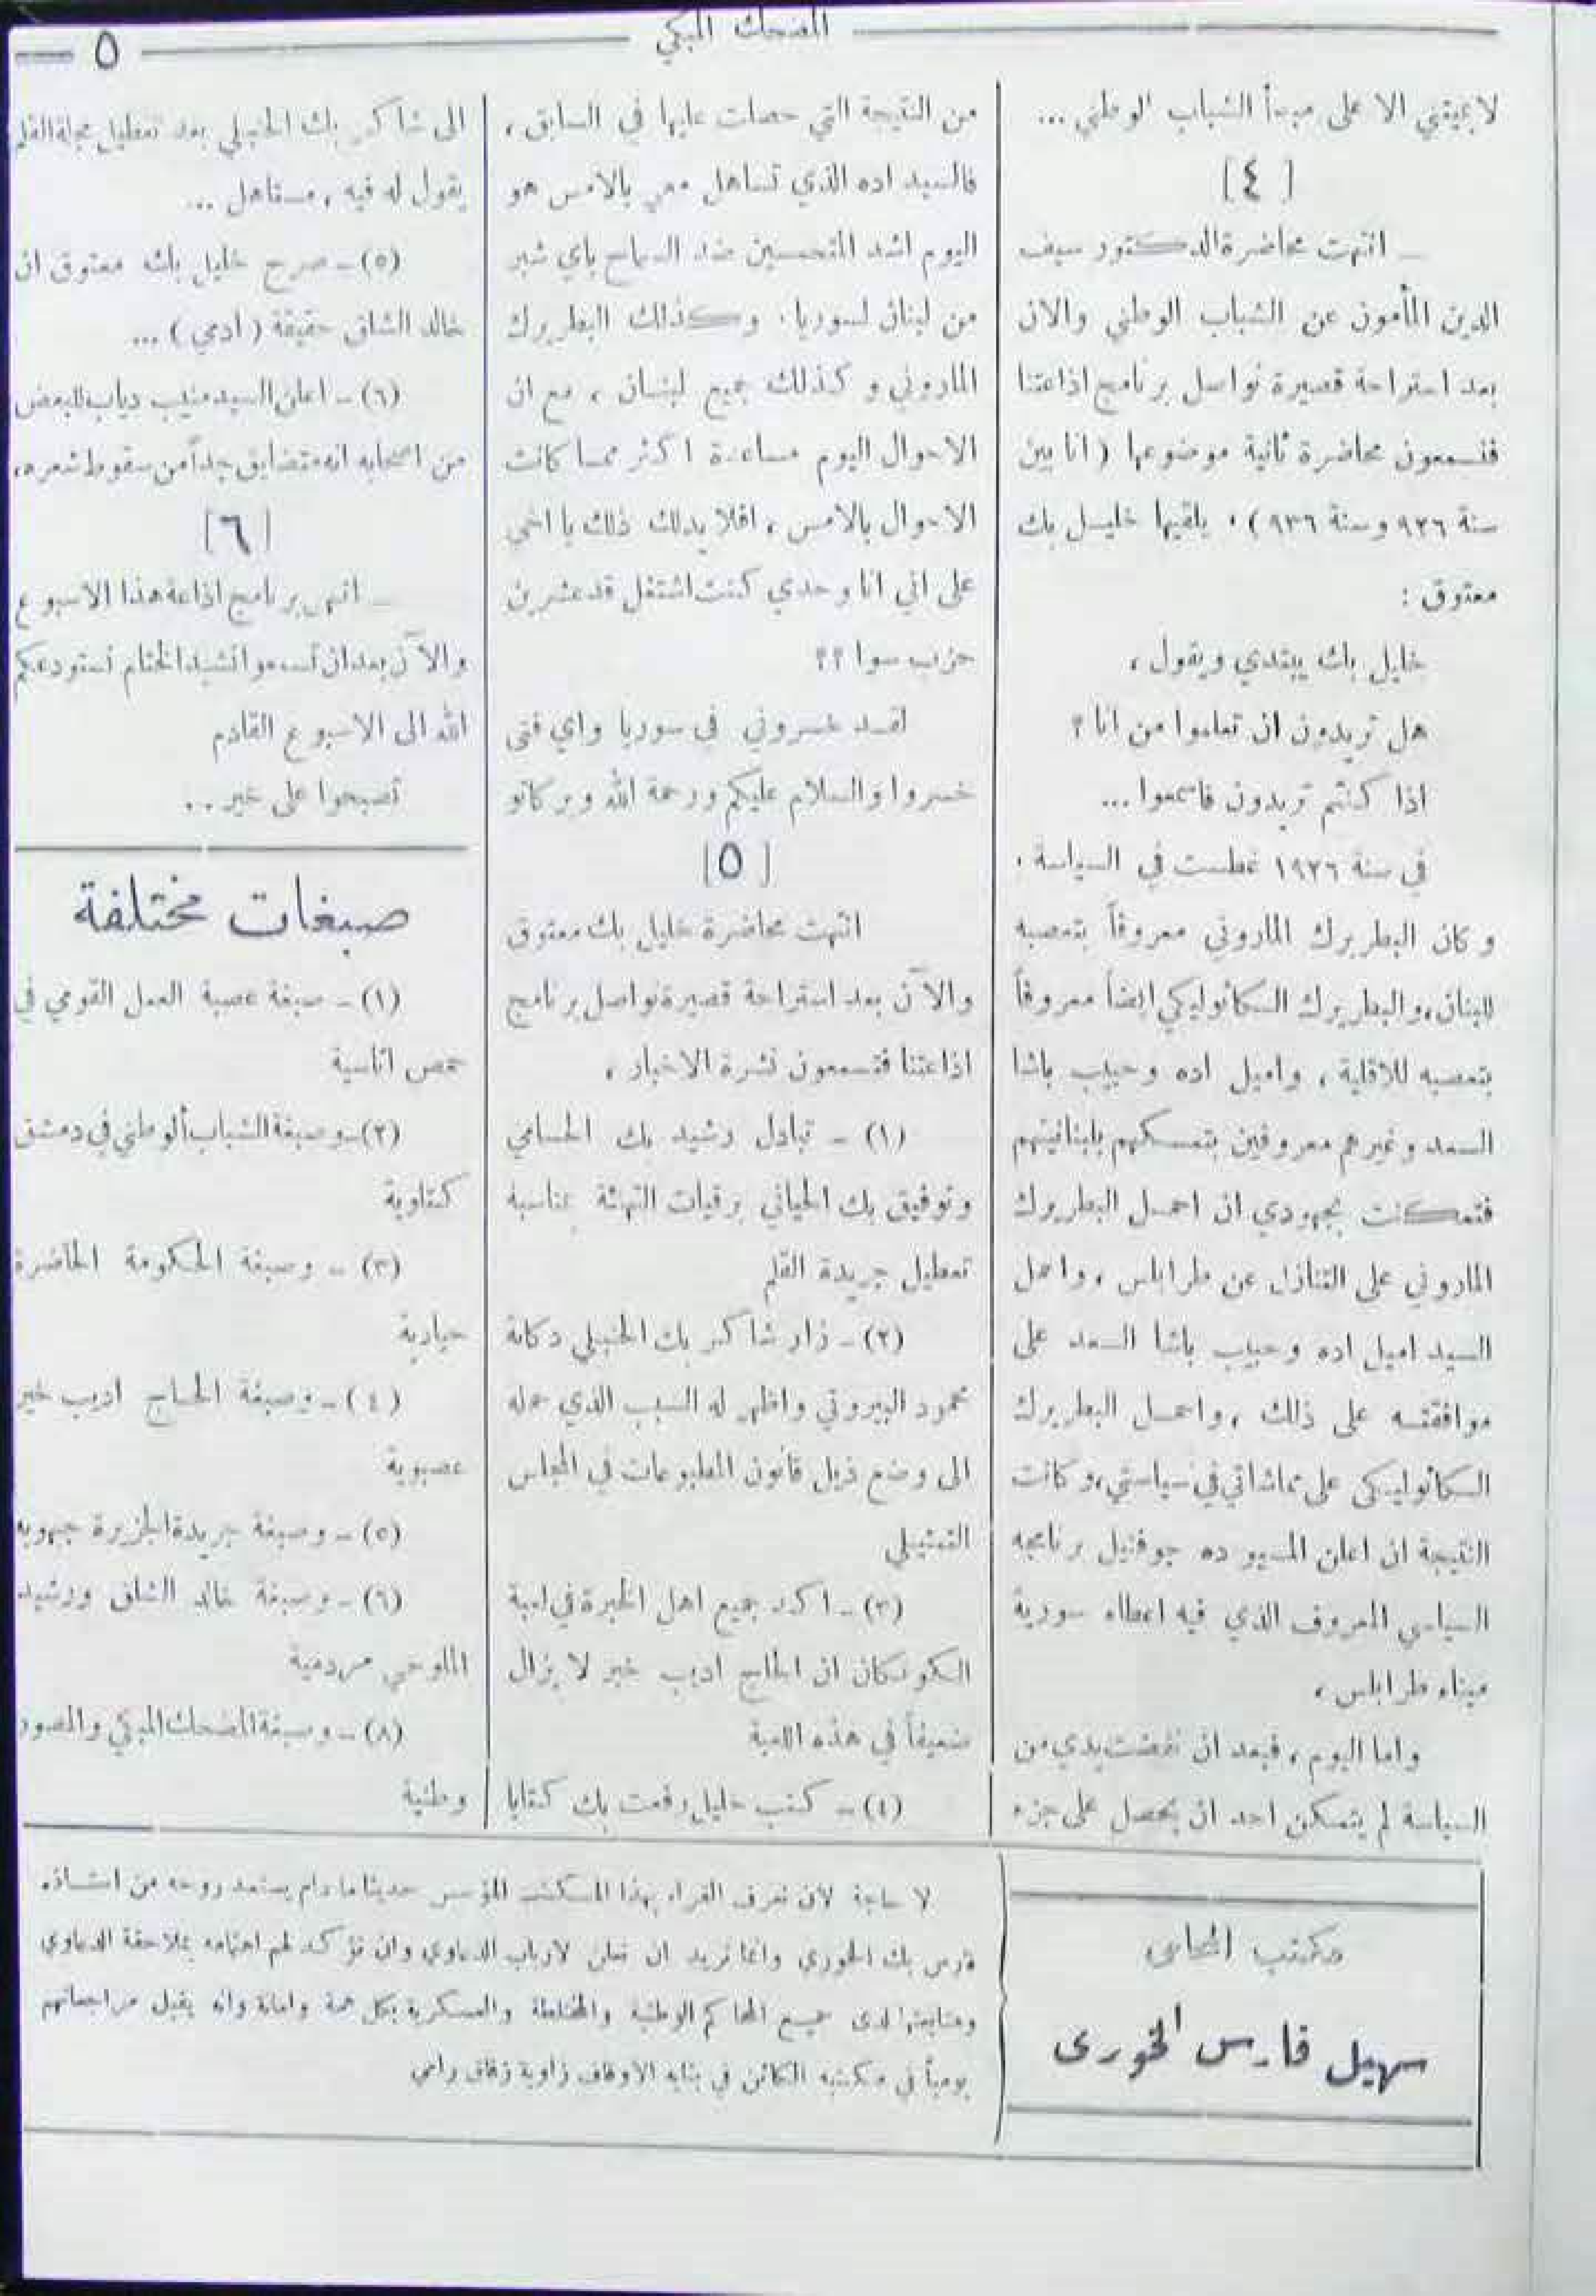 المضحك المبكي
٥
لا يميتني الا على مبدأ الشباب الوطني ...
[ ٤ ]
_ انتهت محاضرة الدكتور سيف
الدين المأمون عن الشباب الوطني والان
بعد استراحة قصيرة نواصل برنامج اذاعتنا
فتسمعون محاضرة ثانية موضوعها ( انا بين
سنة ٩٢٦ وسنة ٩٣٦ ) . يلقيها خليل بك
معتوق :
خليل بك يبتدي ويقول ،
هل تريدون ان تعلموا من انا ؟
اذا كنتم تريدون فاسمعوا ...
في سنة ١٩٢٦ غطست في السياسة .
وكان البطريرك الماروني معروفاً بتعصبه
للبنان ، والبطريرك الكاثوليكي ايضاً معروفاً
بتعصبه للاقلية ، واميل اده وحبيب باشا
السعد وغيرهم معروفين بتمسكهم بلبنانيتهم
فتمكنت بجهودي ان احمل البطريرك
الماروني على التنازل عن طرابلس ، واحمل
السيد اميل اده وحبيب باشا السعد على
موافقته على ذلك ، واحمل البطريرك
الكاثوليكي على مماشاتي في سياستي ، وكانت
النتيجة ان اعلن المسيو ده جوفنيل برنامجه
السياسي المعروف الذي فيه اعطاء سورية
ميناء طرابلس ،
واما اليوم ، فبعد ان نفضت يدي من
السياسة لم يتمكن احد ان يحصل على جزء
من النتيجة التي حصلت عليها في السابق ،
فالسيد اده الذي تساهل معي بالامس هو
اليوم اشد المتحمسين ضد السماح باي شبر
من لبنان لسوريا . وكذلك البطريرك
الماروني وكذلك جميع لبنان ، مع ان
الاحوال اليوم مساعدة اكثر مما كانت
الاحوال بالامس ، افلا يدلك ذلك يا اخي
على اني انا وحدي كنت اشتغل قد عشرين
حزب سوا ؟؟
لقد خسروني في سوريا واي فتى
خسروا والسلام عليكم ورحمة الله وبركاتو
[ ٥ ]
انتهت محاضرة خليل بك معتوق
والآن بعد استراحة قصيرة نواصل برنامج
اذاعتنا فتسمعون نشرة الاخبار ،
(١) - تبادل رشيد بك الحسامي
وتوفيق بك الحياني برقيات التهنئة بمناسبة
تعطيل جريدة القلم
(٢) - زار شاكر بك الحنبلي دكانة
محمود البيروتي واظهر له السبب الذي حمله
الى وضع ذيل قانون المطبوعات في المجلس
التمثيلي
(٣) - اكد جميع اهل الخبرة في لعبة
الكونكان ان الحاج اديب خير لا يزال
ضعيفاً في هذه اللعبة
(٤) - كتب خليل رفعت بك كتابا
الى شاكر بك الحنبلي بعد تعطيل مجلة القلم
يقول له فيه ، مستاهل ...
(٥) - صرح خليل بك معتوق ان
خالد الشلق حقيقة ( ادمي ) ...
(٦) - اعلن السيد منيب دياب للبعض
من اصحابه انه متضايق جداً من سقوط شعره ،
[ ٦ ]
_ انتهى برنامج اذاعة هذا الاسبوع
والآن بعد ان تسمعوا نشيد الختام نستودعكم
الله الى الاسبوع القادم
تصبحوا على خير ..
صبغات مختلفة
(١) - صبغة عصبة العمل القومي في
حمص اتاسية
(٢) - وصبغة الشباب الوطني في دمشق
كتلوية
(٣) - وصبغة الحكومة الحاضرة
حيادية
(٤) - وصبغة الحاج اديب خير
عصبوية
(٥) - وصبغة جريدة الجزيرة جبهوية
(٦) - وصبغة خالد الشلق ورشيد
الملوحي مردمية
(٨) - وصبغة المضحك المبكي والمصور
وطنية
مكتب المحامي
سهيل فارس الخوري
لا حاجة لأن نعرف القراء بهذا المكتب المؤسس حديثا ما دام يستمد روحه من استاذه
فارس بك الخوري وانما نريد ان نعلن لارباب الدعاوي وان نؤكد لهم اهتمامه بملاحقة الدعاوي
ومتابعتها لدى جميع المحاكم الوطنية والمختلطة والعسكرية بكل همة وامانة وانه يقبل مراجعاتهم
يومياً في مكتبه الكائن في بناية الاوقاف زاوية زقاق رامي